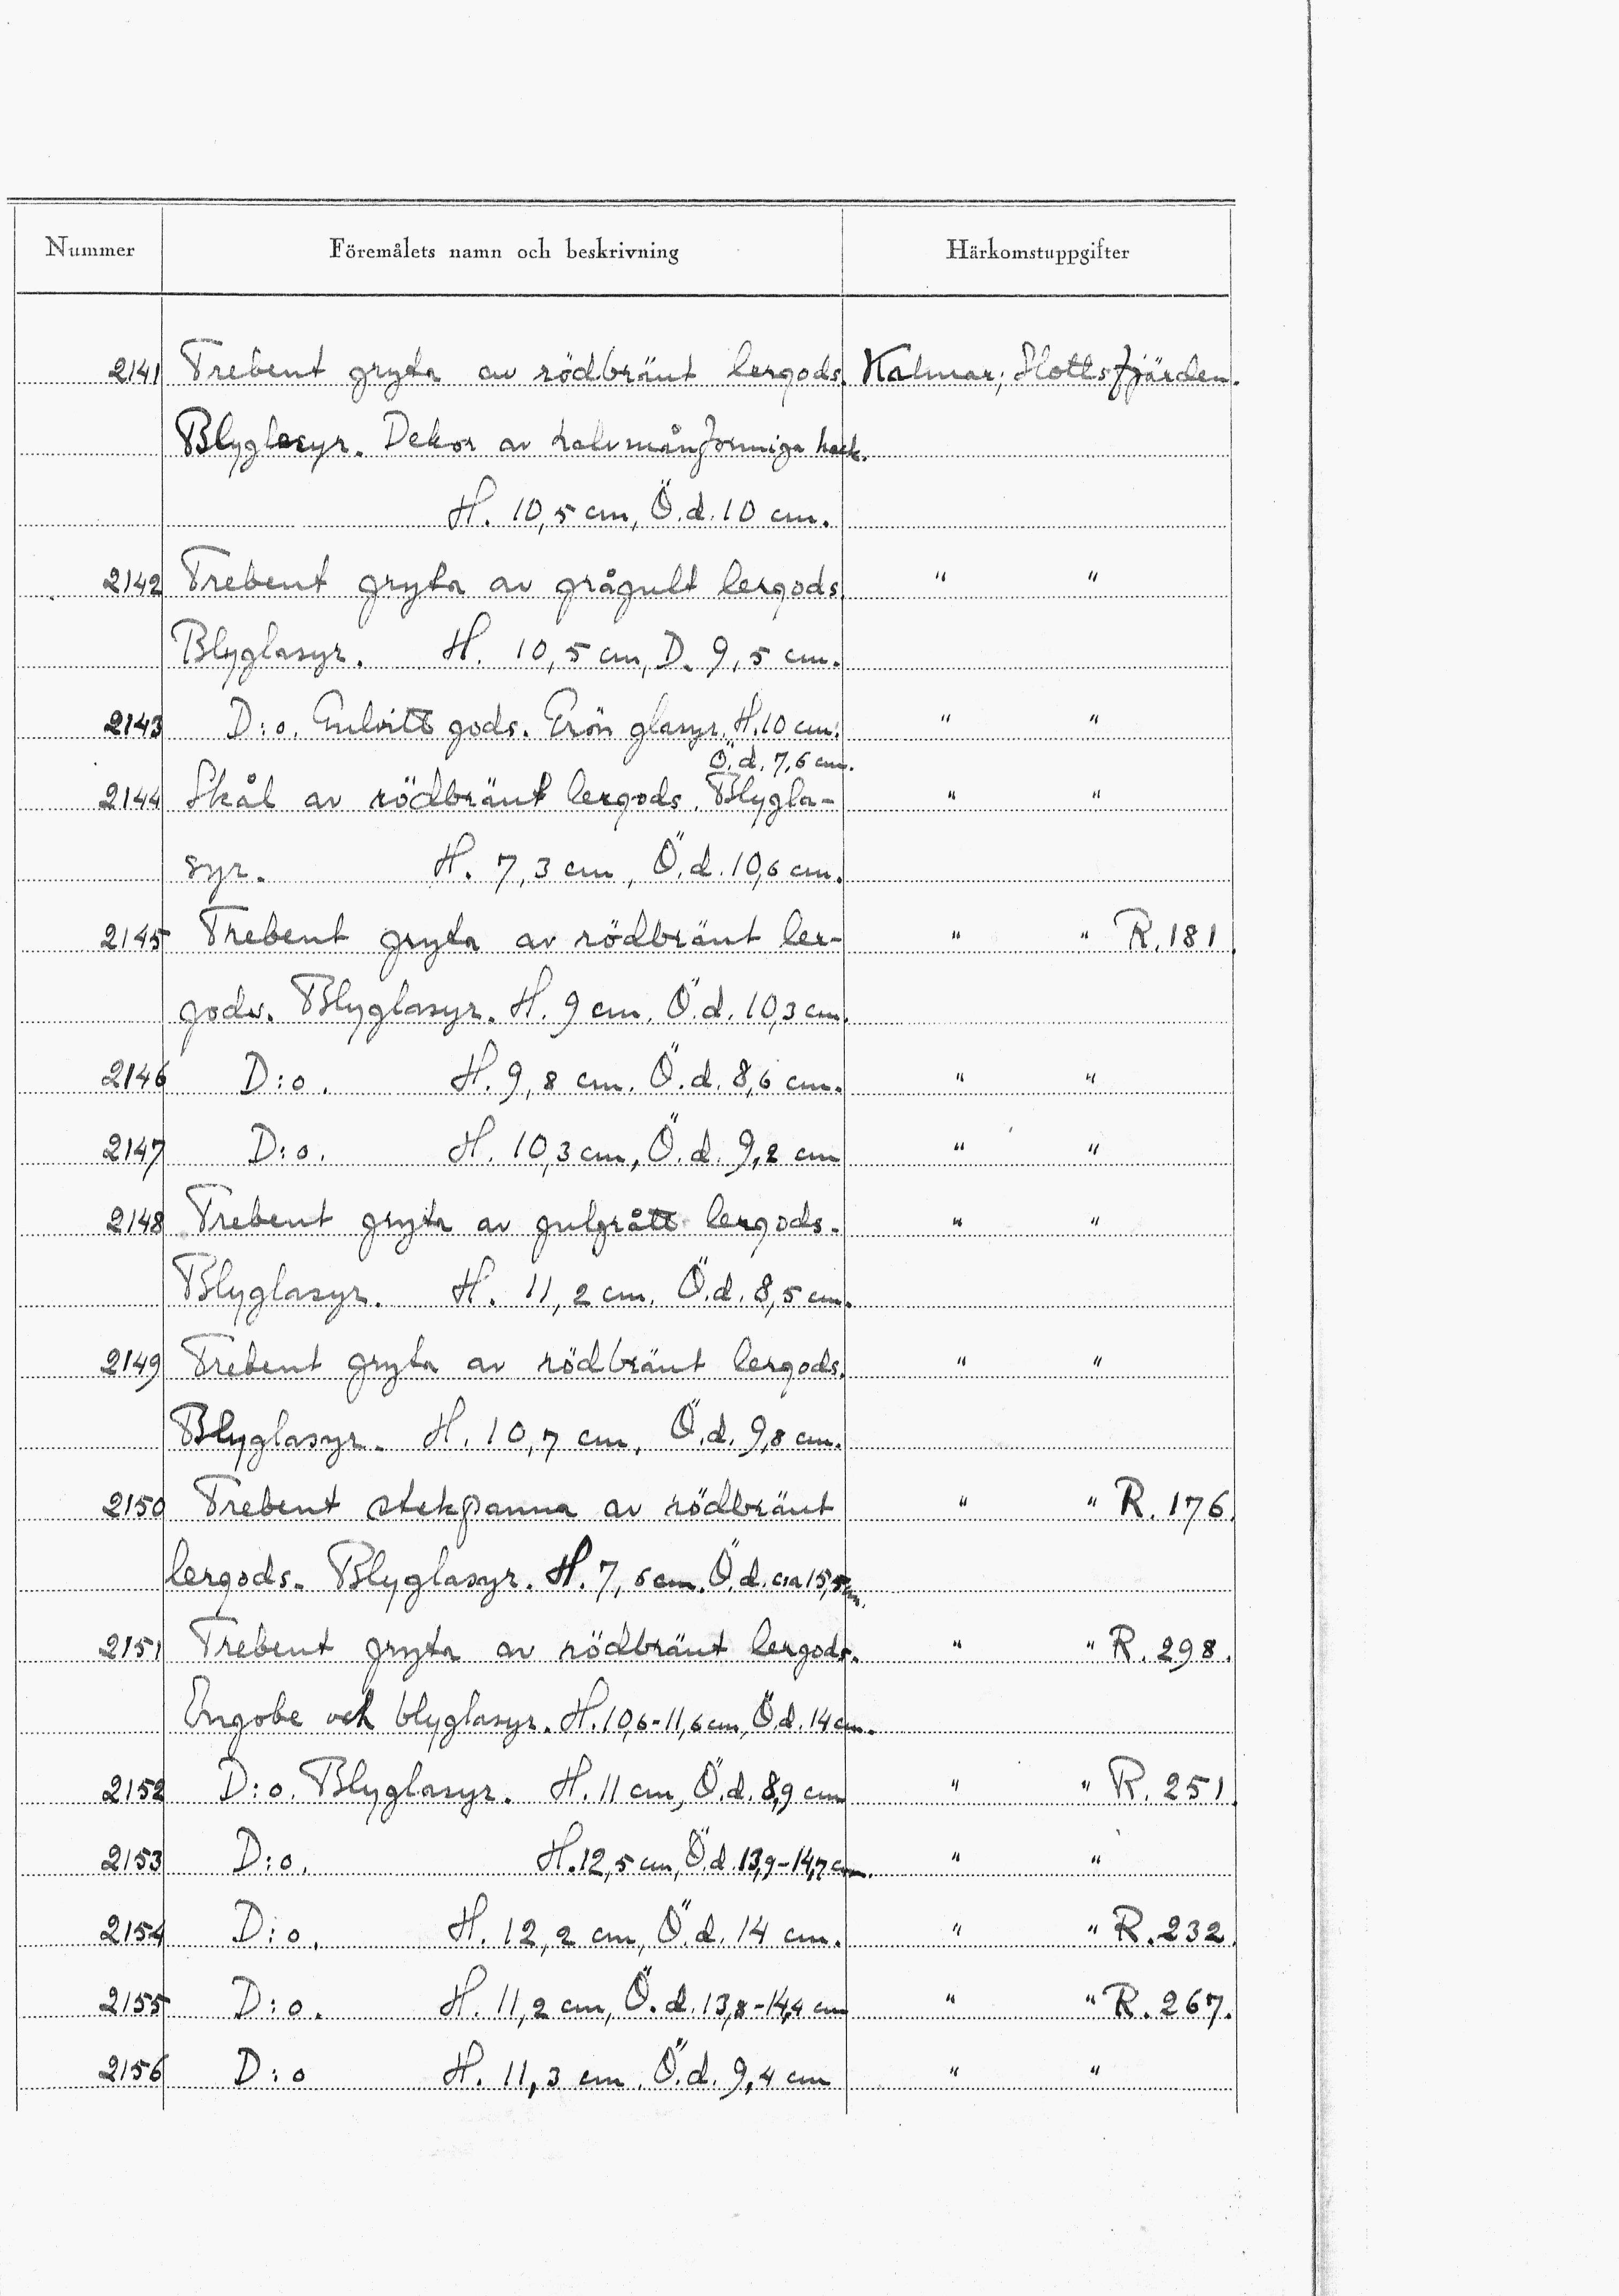 Nummer Föremålets namn och beskrivning Härkomstuppgifter
2141 Trebent gryta av rödbränt lergods. Kalmar; Slottsfjärden.
Blyglasyr. Dekor av halvmånformiga hack.
H. 10,5 cm, Ö.d. 10 cm.
2142 Trebent gryta av grågult lergods. " "
Blyglasyr. H. 10,5 cm, D. 9,5 cm.
2143 D:o. Gulvitt gods. Grön glasyr. H. 10 cm. " "
Ö.d. 7,6 cm.
2144 Skål av rödbränt lergods. Blygla- " "
syr. H. 7,3 cm, Ö.d. 10,6 cm.
2145 Trebent gryta av rödbränt ler- " " R. 181.
gods. Blyglasyr. H. 9 cm. Ö.d. 10,3 cm.
2146 D:o. H. 9,8 cm. Ö.d. 8,6 cm. " "
2147 D:o. H. 10,3 cm, Ö.d. 9,2 cm " "
2148 Trebent gryta av gulgrått lergods. " "
Blyglasyr. H. 11,2 cm. Ö.d. 8,5 cm.
2149 Trebent gryta av rödbränt lergods. " "
Blyglasyr. H. 10,7 cm. Ö.d. 9,8 cm.
2150 Trebent stekpanna av rödbränt " " R. 176.
lergods. Blyglasyr. H. 7,6 cm. Ö.d. ca 15,5 cm.
2151 Trebent gryta av rödbränt lergods. " " R. 298.
Engobe och blyglasyr. H. 10,6-11,6 cm, Ö.d. 14 cm.
2152 D:o. Blyglasyr. H. 11 cm, Ö.d. 8,9 cm " " R. 251.
2153 D:o. H. 12,5 cm, Ö.d. 13,9-14,7 cm. " "
2154 D:o. H. 12,2 cm, Ö.d. 14 cm. " " R. 232.
2155 D:o. H. 11,2 cm, Ö.d. 13,8-14,4 cm " " R. 267.
2156 D:o H. 11,3 cm. Ö.d. 9,4 cm " "